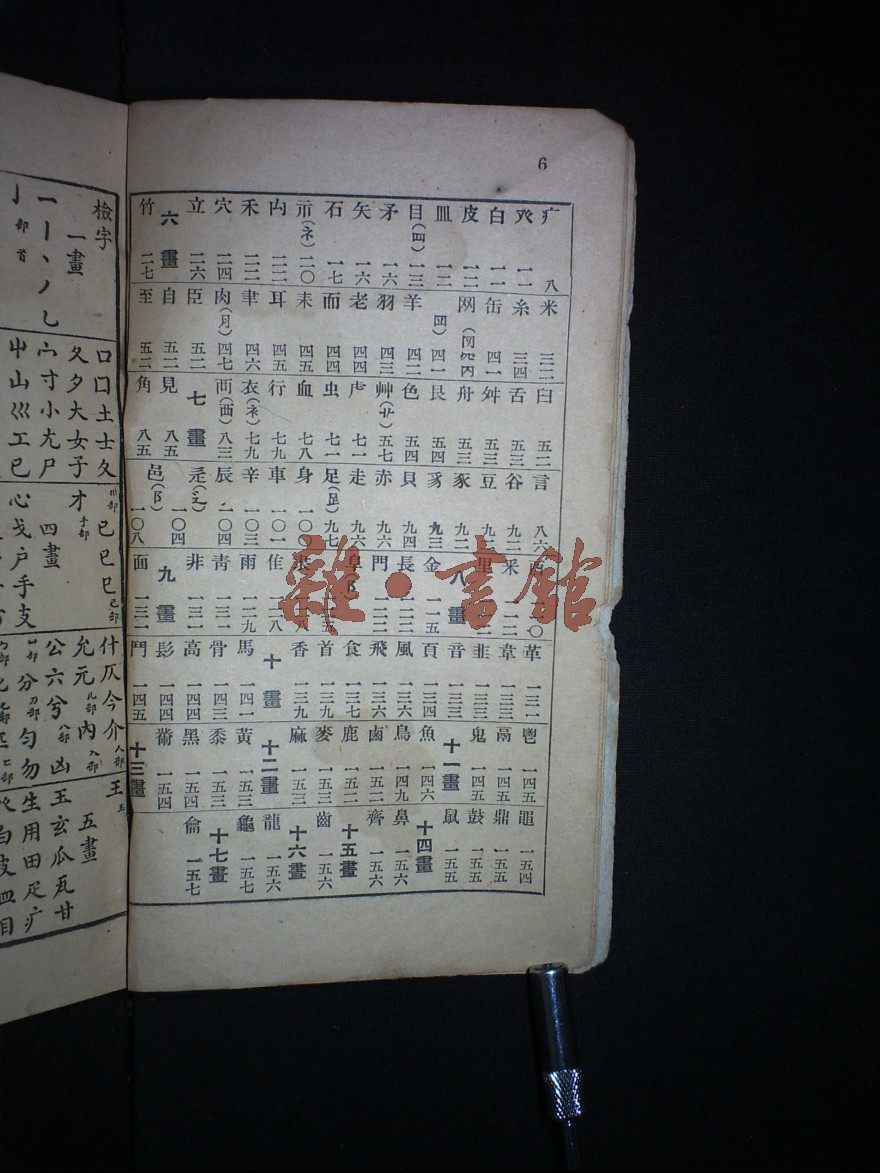 6
疒 八
癶 一一
白 一一
皮 一二
皿 一二
目(罒) 一三
矛 一六
矢 一六
石 一七
示(礻) 二〇
禸 二二
禾 二二
穴 二四
立 二六
六畫
竹 二七
米 三二
糸 三四
缶 四一
网
罒) 四一
羊 四二
羽 四三
老 四四
而 四四
耒 四五
耳 四五
聿 四六
肉(月) 四七
臣 五二
自 五二
至 五二
臼 五二
舌 五三
舛 五三
舟 五三
艮 五四
色 五四
艸(艹) 五七
虍 七一
虫 七一
血 七八
行 七九
衣(衤) 七九
襾(西) 八三
七畫
見 八五
角 八五
言 八六
谷 九二
豆 九二
豕 九二
豸 九三
貝 九四
赤 九六
走 九六
足(𧾷) 九七
身 一〇〇
車 一〇一
辛 一〇三
辰 一〇四
辵(辶) 一〇四
邑(阝) 一〇八
酉
釆 一一二
里
八畫
金 一一五
長 一二二
門 一二二
阜
隹 一二八
雨 一二九
靑 一三一
非 一三一
九畫
面 一三一
革 一三一
韋 一三三
韭 一三三
音 一三三
頁 一三四
風 一三六
飛 一三六
食 一三七
首 一三九
香 一三九
十畫
馬 一四一
骨 一四三
高 一四四
髟 一四四
鬥 一四五
鬯 一四五
鬲 一四五
鬼 一四五
十一畫
魚 一四六
鳥 一四九
鹵 一五二
鹿 一五二
麥 一五三
麻 一五三
十二畫
黃 一五三
黍 一五三
黑 一五四
黹 一五四
十三畫
黽 一五四
鼎 一五五
鼓 一五五
鼠 一五五
十四畫
鼻 一五六
齊 一五六
十五畫
齒 一五六
十六畫
龍 一五六
龜 一五七
十七畫
龠 一五七
雜·書館
檢字
一畫
一丨丶丿乚
亅部首
口囗土士夂
夊夕大女子
宀寸小尢尸
屮山巛工己
已巳己部
才手部
四畫
心戈戶手支
什仄今介人部
允元儿部內入部
公六兮八部凶
分刀部勻勿
王玉
五畫
玉玄瓜瓦甘
生用田疋疒
癶白皮皿目